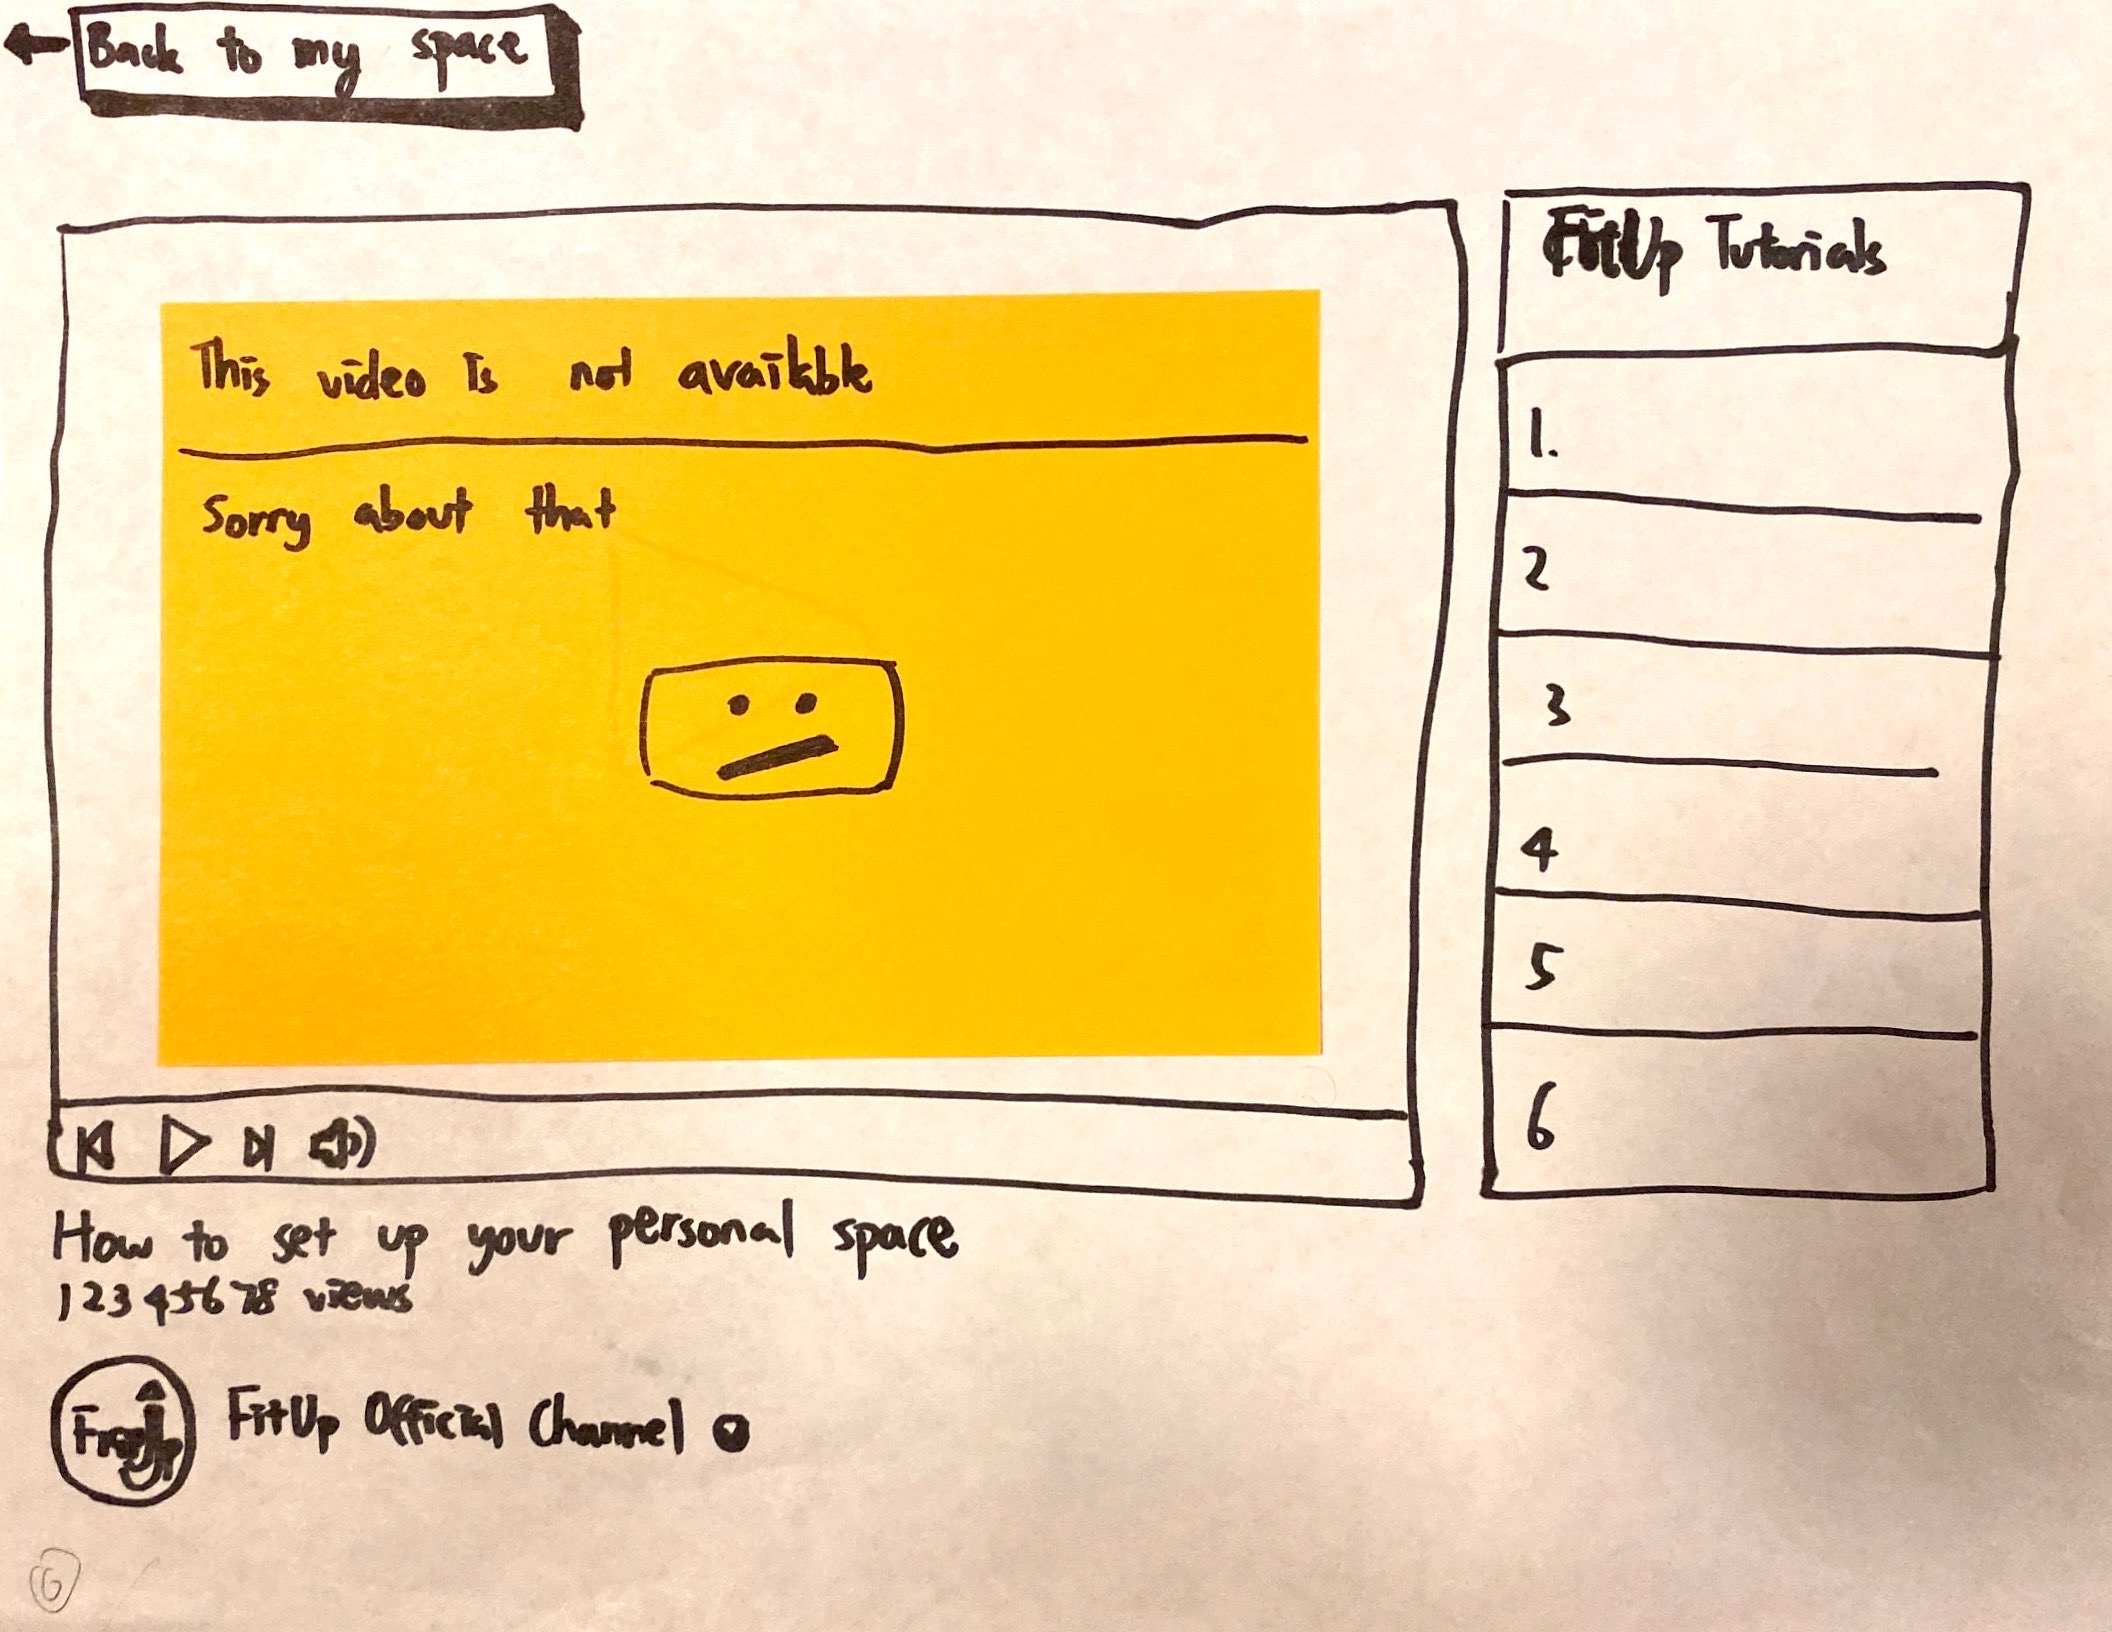 Back to my space
This video is not available
Sorry about that
FitUp Tutorials
1.
2
3
4
5
6
How to set up your personal space
12345678 views
FitUp Official Channel
6